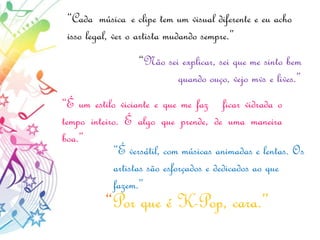 "Cada música e clipe tem um visual diferente e eu acho
isso legal, ver o artista mudando sempre."
"Não sei explicar, sei que me sinto bem
quando ouço, vejo mvs e lives."
"É um estilo viciante e que me faz ficar vidrada o
tempo inteiro. É algo que prende, de uma maneira
boa."
"É versátil, com músicas animadas e lentas. Os
artistas são esforçados e dedicados ao que
fazem."
"Por que é K-Pop, cara."